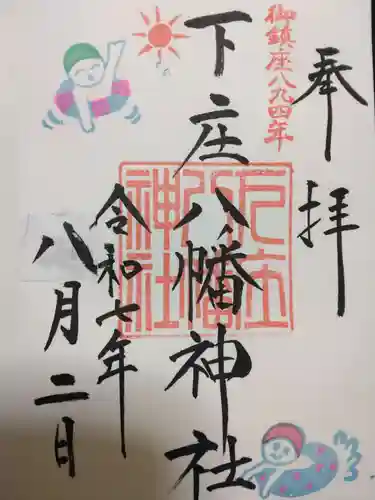 奉拝
御鎮座八九四年
下庄八幡神社
令和七年
八月二日
下庄八幡神社